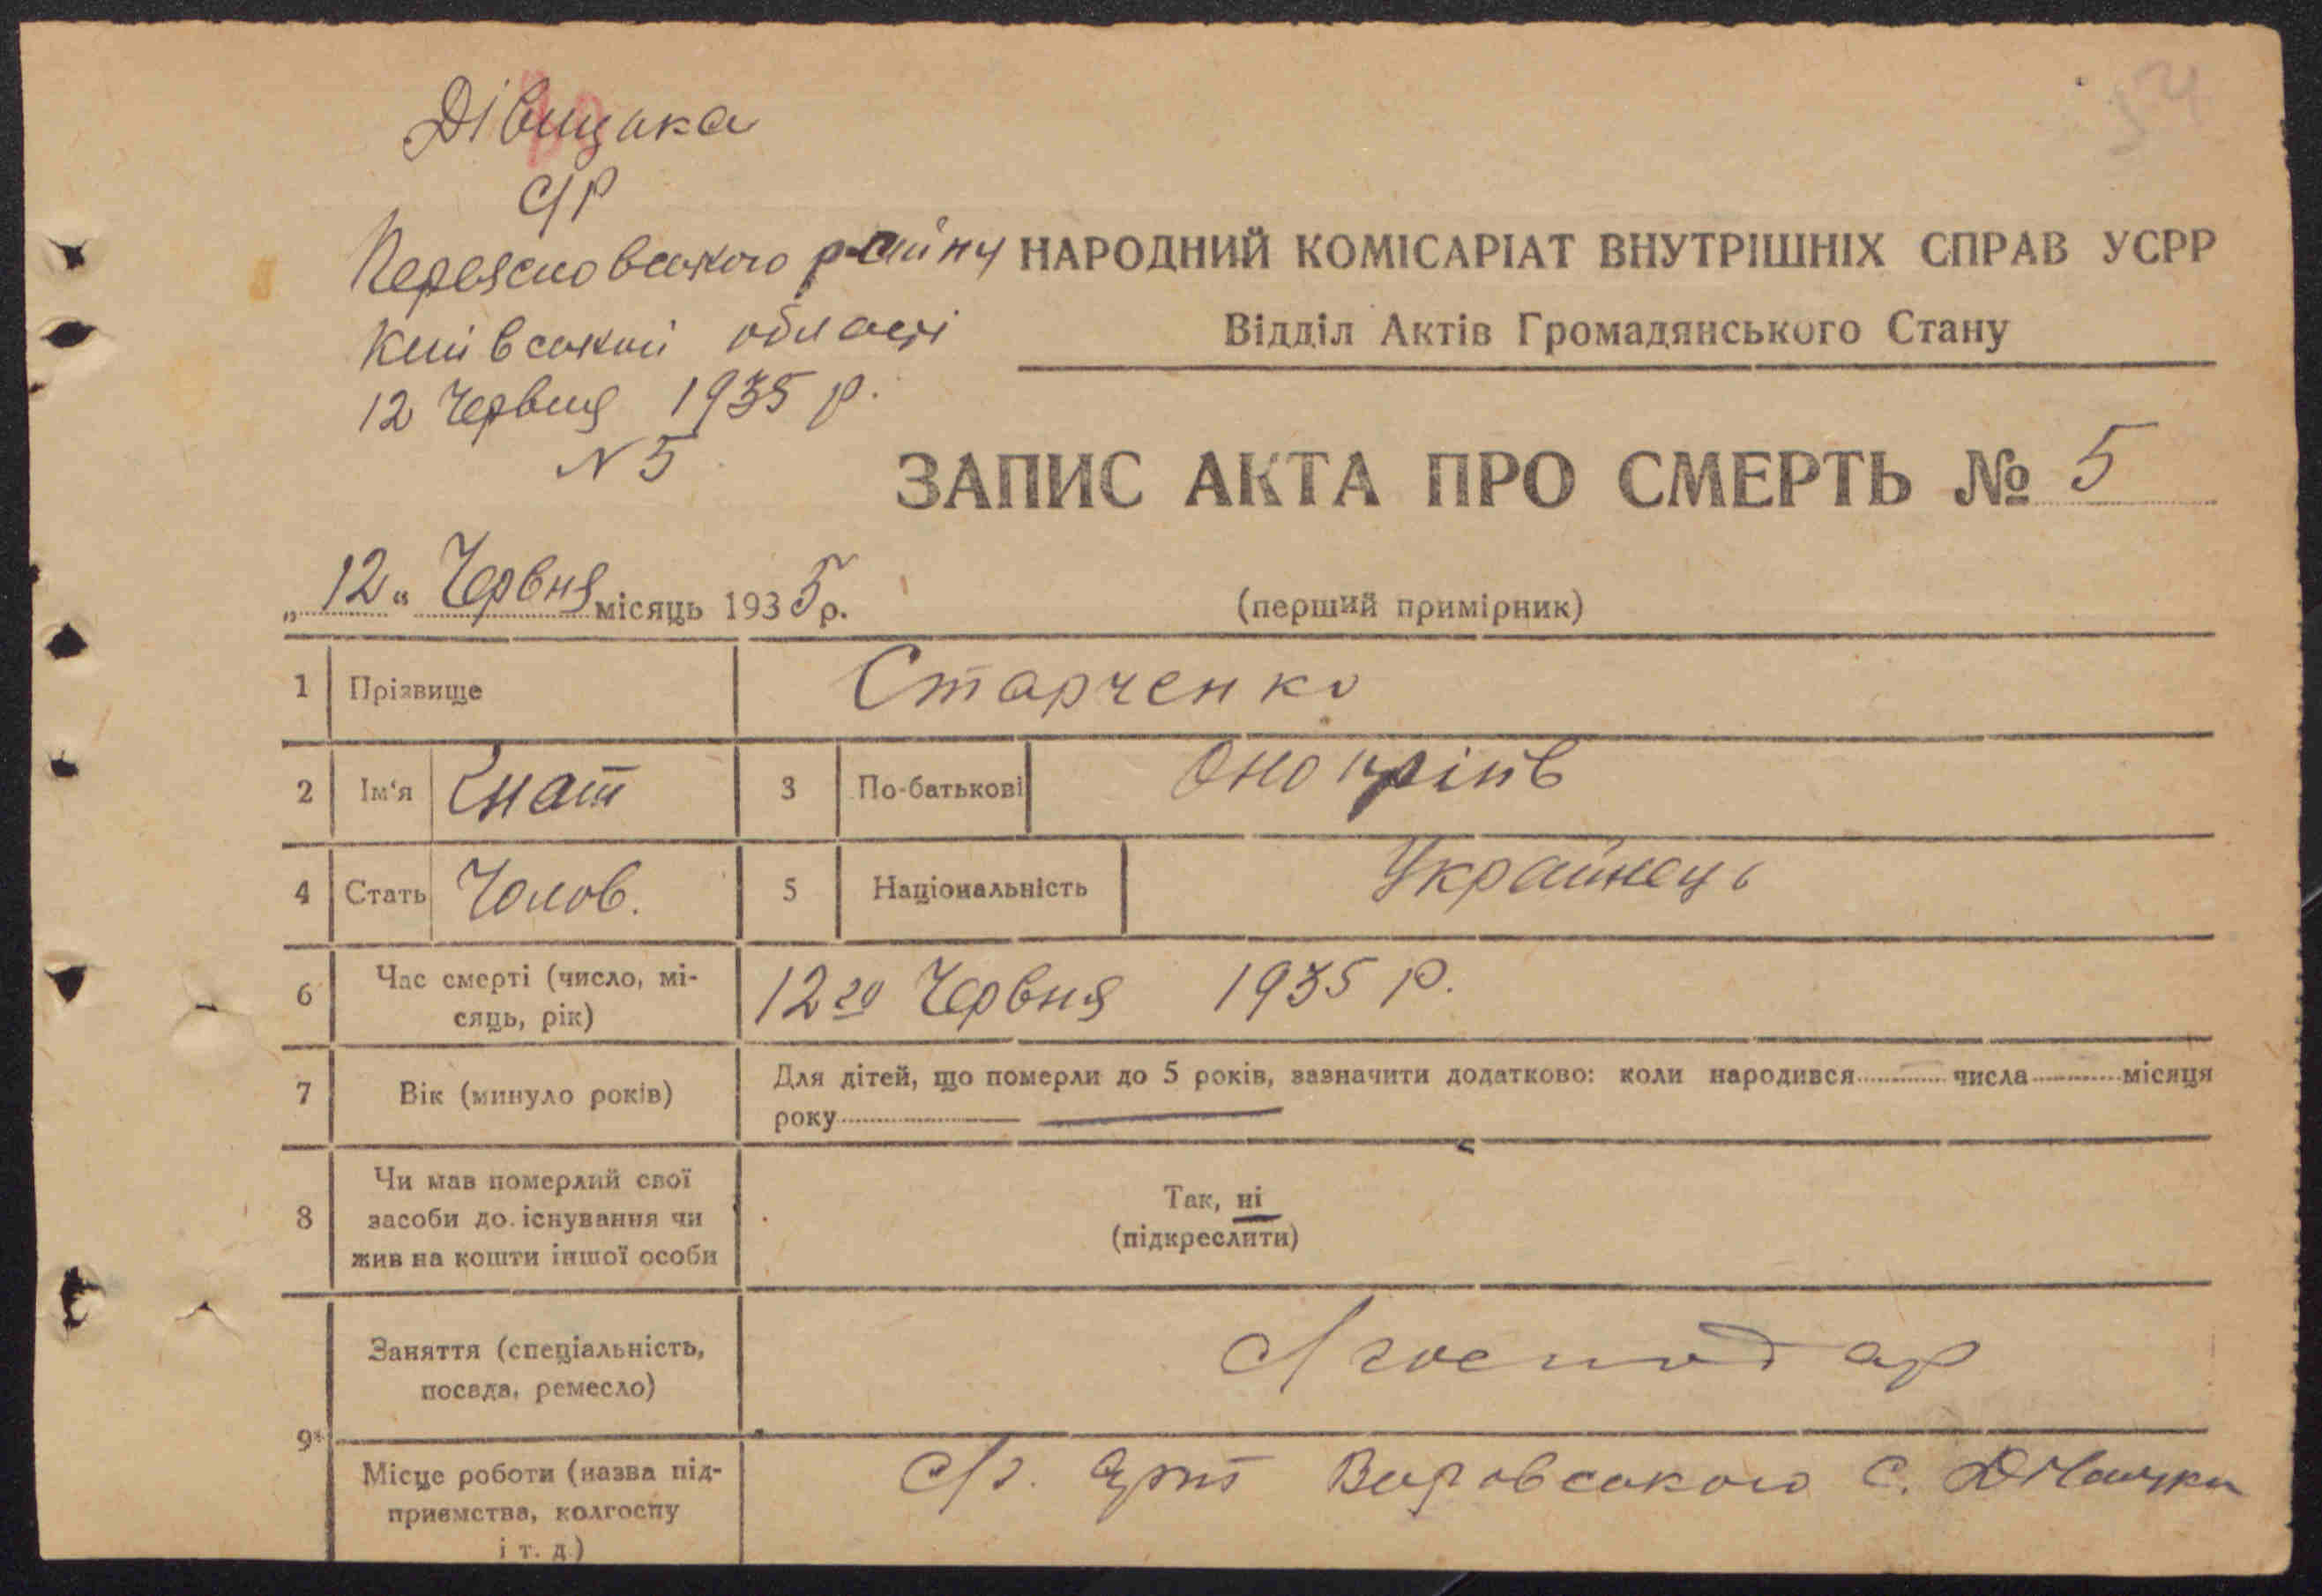 54
Дівицька
с/р
Переяславського району
Київської області
12 Червня 1935 р.
N 5
НАРОДНИЙ КОМІСАРІАТ ВНУТРІШНІХ СПРАВ УСРР
Відділ Актів Громадянського Стану
ЗАПИС АКТА ПРО СМЕРТЬ № 5
„12“ Червня місяць 1935 р.
(перший примірник)
1 Прізвище Старченко
2 Ім'я Гнат 3 По-батькові Онопріїв
4 Стать Чолов. 5 Національність Українець
6 Час смерті (число, мі-
сяць, рік) 12го Червня 1935 р.
7 Вік (минуло років) Для дітей, що померли до 5 років, зазначити додатково: коли народився числа місяця
року
8 Чи мав померлий свої
засоби до існування чи
жив на кошти іншої особи
Так, ні
(підкреслити)
9 Заняття (спеціальність,
посада, ремесло) с/господар
Місце роботи (назва під-
приємства, колгоспу
і т. д.) с/г. арт Воровського с.